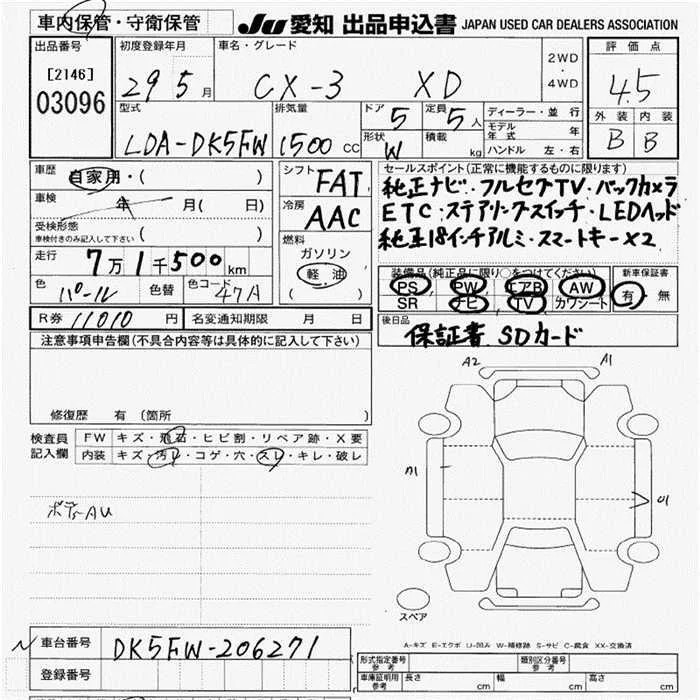 車内保管・守衛保管
JU 愛知 出品申込書 JAPAN USED CAR DEALERS ASSOCIATION
出品番号
[2146]
03096
初度登録年月
29 5 月
車名・グレード
CX-3 XD
2WD
・
4WD
評価点
4.5
外装 内装
B B
型式
LDA-DK5FW
排気量
1500 CC
ドア 5
定員 5 人
形状 W
積載 kg
ディーラー・並 行
モデル年式 年
ハンドル 左・右
車歴 自家用・( )
車検 年 月( 日)
受検形態
車検付きのみ記入して下さい ( )
走行 7万1千500 km
色 パール 色替 色コード 47A
シフト FAT
冷房 AAC
燃料
ガソリン
軽 油
( )
セールスポイント(正常に機能するものに限ります)
純正ナビ・フルセグTV・バックカメラ
ETC・ステアリングスイッチ・LEDヘッド
純正18インチアルミ・スマートキー×2
装備品(純正品に限り○をつけてください)
PS PW エアB AW
SR ナビ TV カワシート
新車保証書
有・無
R券 11010 円 名変通知期限 月 日
後日品
保証書 SDカード
注意事項申告欄(不具合内容等は具体的に記入して下さい)
修復歴 有 (箇所 )
検査員記入欄
FW キズ・飛石・ヒビ割・リペア跡・X要
内装 キズ・汚レ・コゲ・穴・スレ・キレ・破レ
ボデーAU
A2 A1
A1
U1
スペア
A-キズ E-エクボ U-凹み W-補修跡 S-サビ C-腐食 XX-交換済
車台番号 DK5FW-206271
登録番号
型式指定番号 参考
類別区分番号 参考
車庫証明用 参考 長さ cm 幅 cm 高さ cm